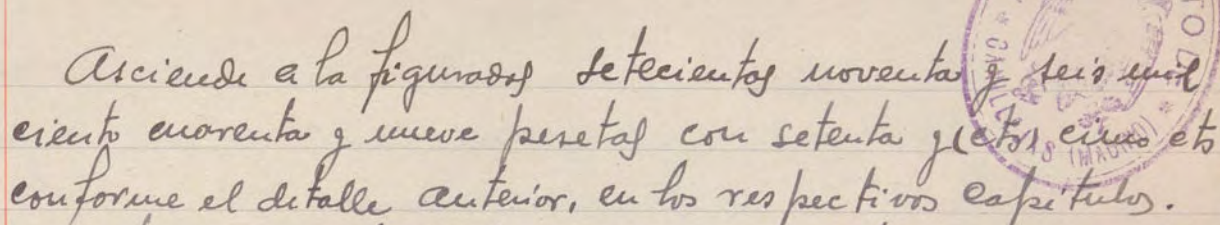 Asciende a la figurados setecientas noventa y seis mil
ciento cuarenta y nueve pesetas con setenta y (cts) cinco cts
conforme el detalle anterior, en los respectivos capítulos.
CANILLEJAS (MADRID)